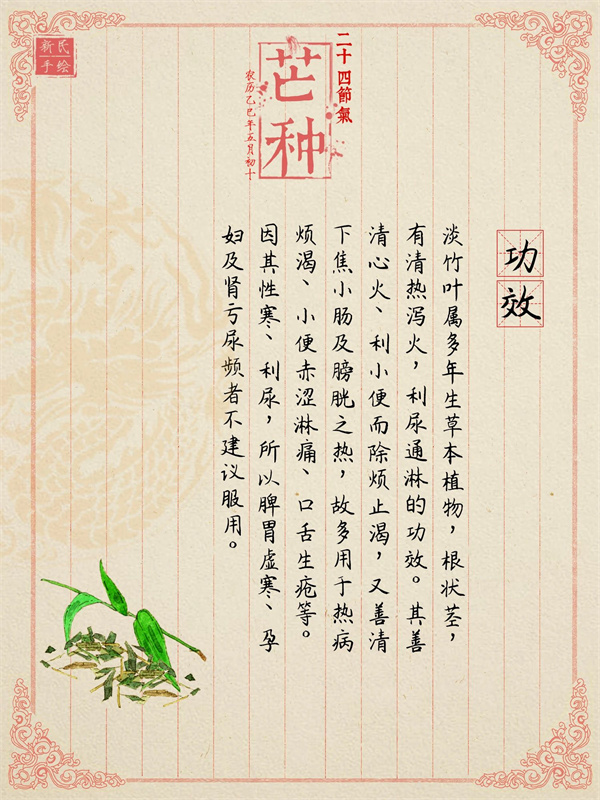 新民
手绘
二十四節氣
芒种
农历乙巳年五月初十
功效
淡竹叶属多年生草本植物，根状茎，
有清热泻火，利尿通淋的功效。其善
清心火、利小便而除烦止渴，又善清
下焦小肠及膀胱之热，故多用于热病
烦渴、小便赤涩淋痛、口舌生疮等。
因其性寒、利尿，所以脾胃虚寒、孕
妇及肾亏尿频者不建议服用。